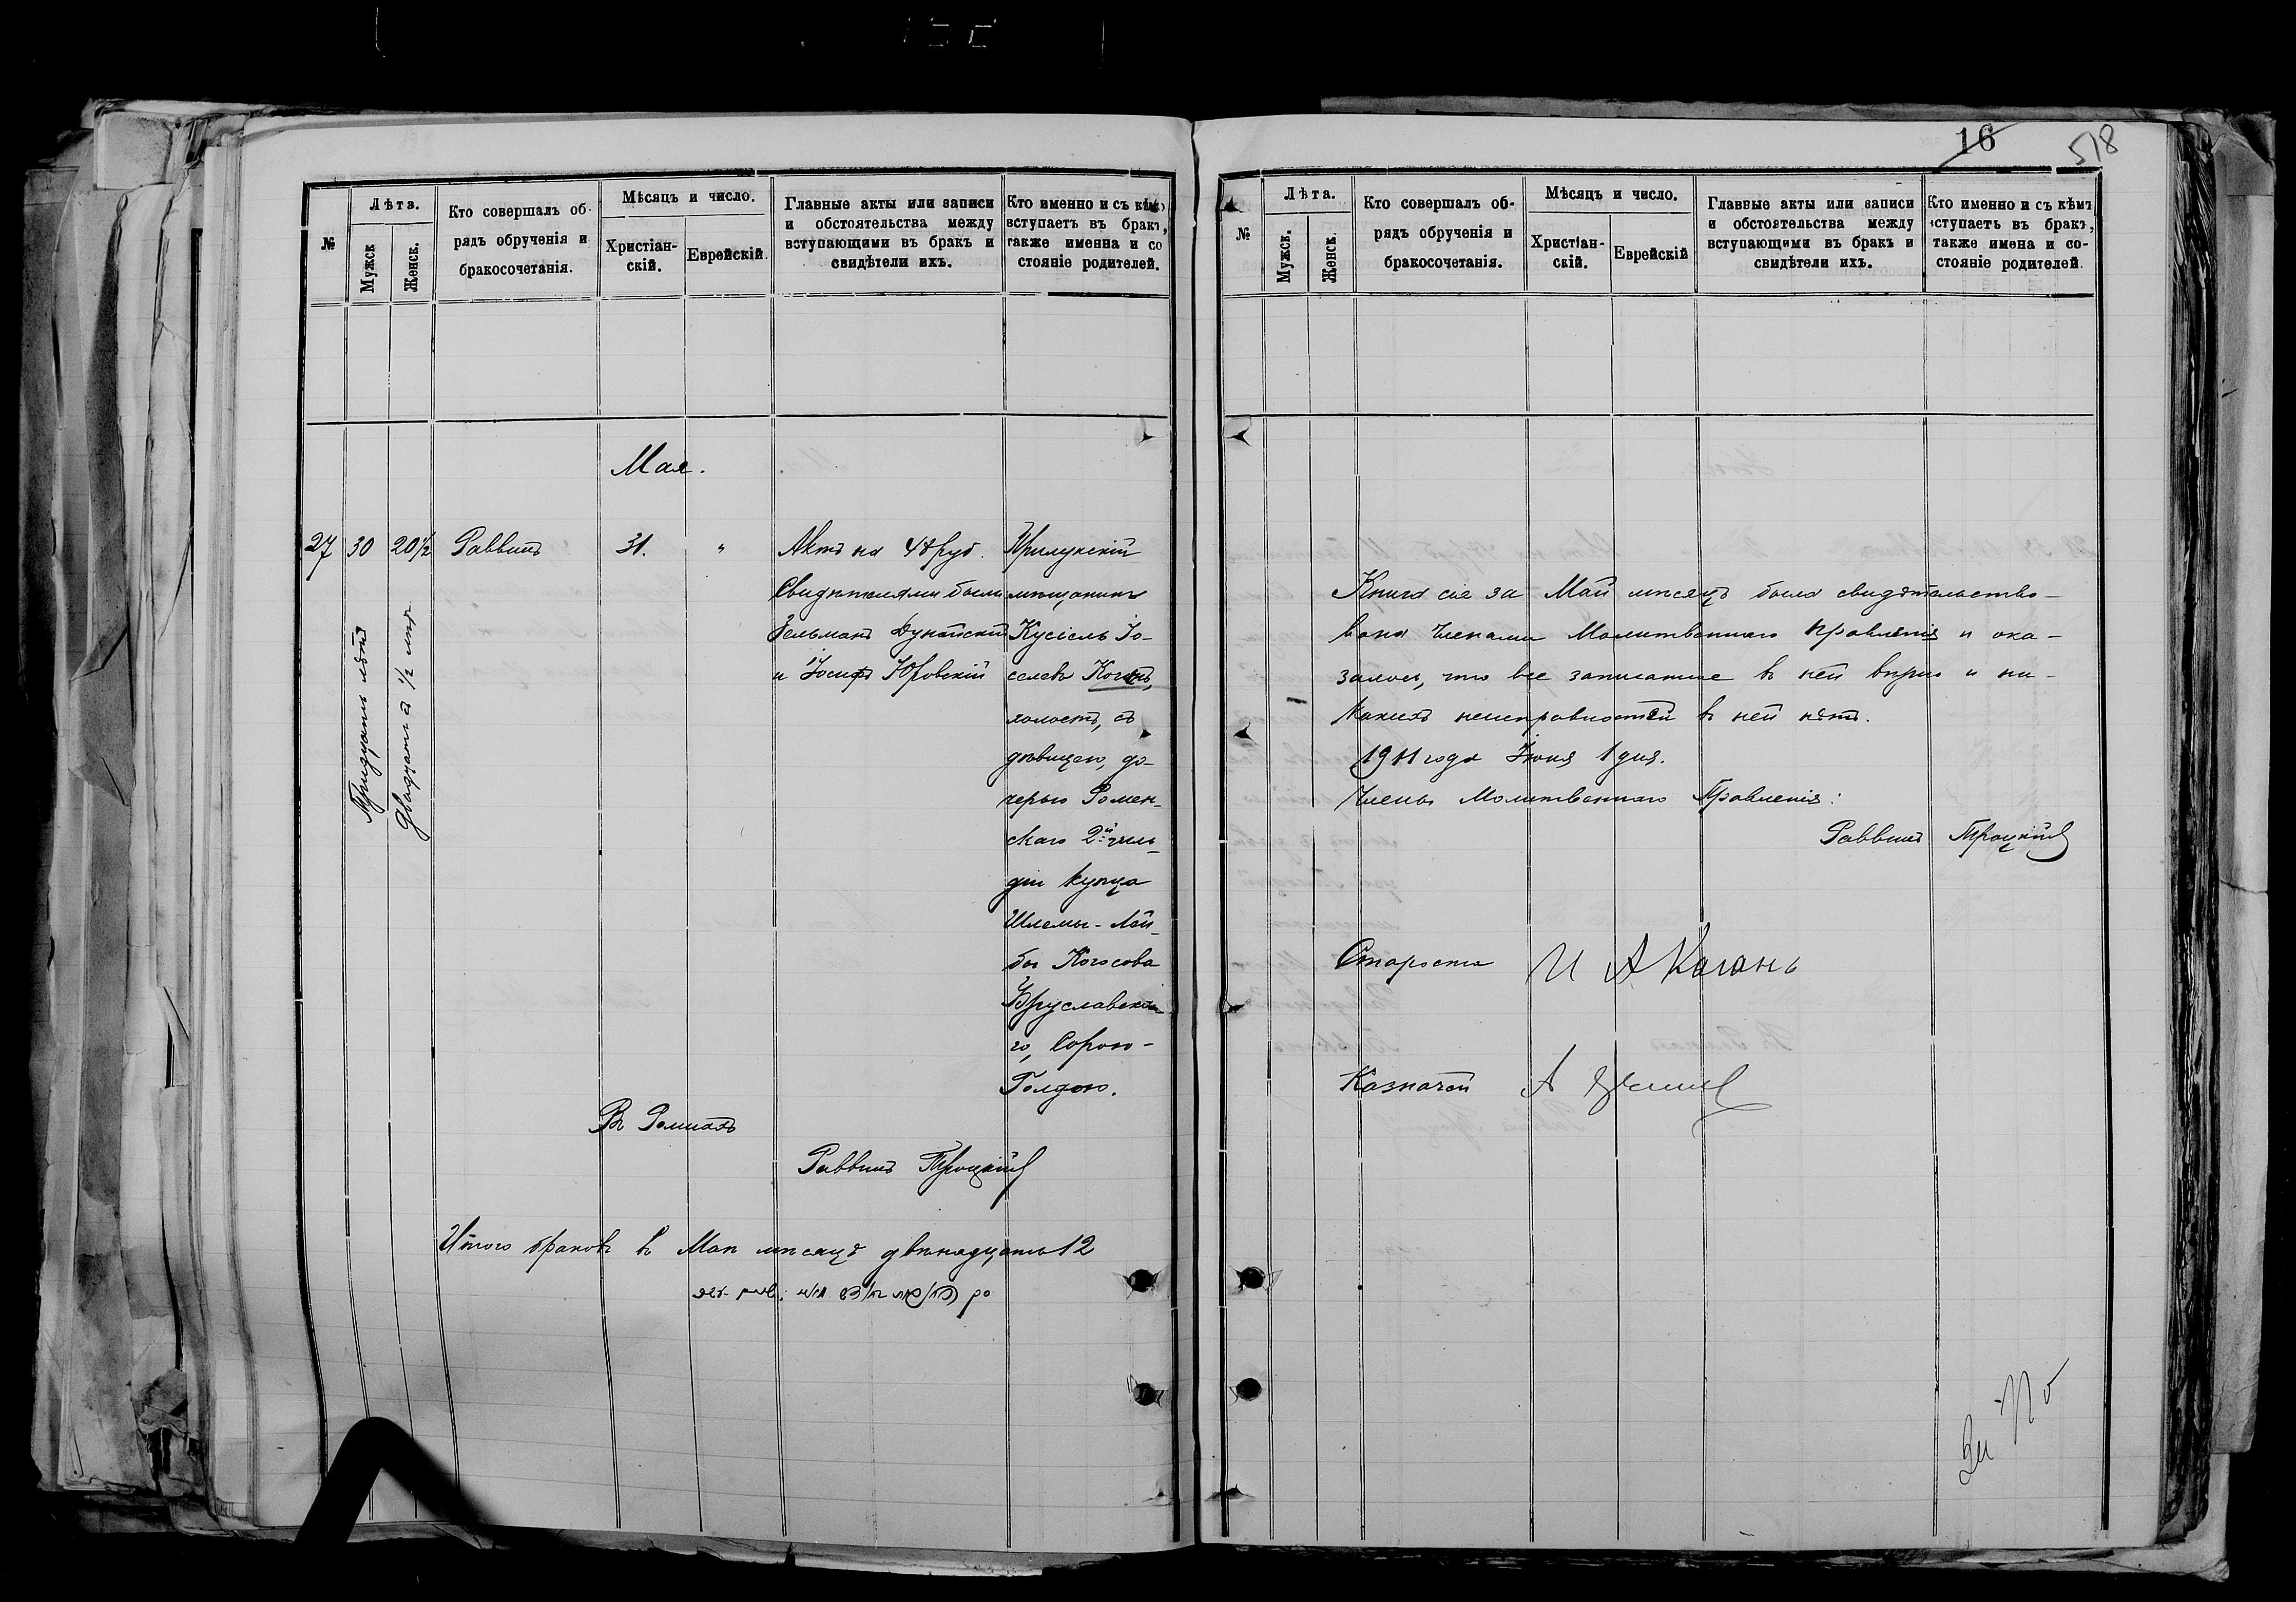 16
518
№
Лѣта.
Мужск
Женск.
Кто совершалъ об-
рядъ обрученія и
бракосочетанія.
Мѣсяцъ и число.
Христіан-
скій.
Еврейскій.
Главные акты или записи
и обстоятельства между
вступающими въ бракъ и
свидѣтели ихъ.
Кто именно и съ кѣмъ
вступаетъ въ бракъ,
также именна и со
стояніе родителей.
Мая.
27
30
Тридцать лѣтъ
20½
Двадцать ½ лѣтъ
Раввинъ
31.
"
Актъ на 48 руб.
Свидѣтелями были
Зельманъ Дунайскій
и Іосифъ Юровскій
Прилукскій
мѣщанинъ
Кусіель Іо-
селевъ Коганъ,
холостъ, съ
дѣвицею, до-
черью Ромен-
скаго 2й гиль-
діи купца
Шлемы-Лей-
бы
го, Сорою-
Голдою.
Въ Ромнахъ
Раввинъ Троцкій
Итого браковъ въ Маѣ мѣсяцѣ двѣнадцать 12
№
Лѣта.
Мужск.
Женск.
Кто совершалъ об-
рядъ обрученія и
бракосочетанія.
Мѣсяцъ и число.
Христіан-
скій.
Еврейскій
Главные акты или записи
и обстоятельства между
вступающими въ бракъ и
свидѣтели ихъ.
Кто именно и съ кѣмъ
вступаетъ въ бракъ,
также имена и со-
стояніе родителей.
Книга сія за Май мѣсяцъ была свидѣтельство-
вана Членами Молитвеннаго Правленія и ока-
залось, что все записанное въ ней вѣрно и ни-
какихъ неисправностей въ ней нѣтъ.
1911 года Іюня 1 дня.
Члены Молитвеннаго Правленія:
Раввинъ Троцкій
Староста И А Каганъ
Казначей А